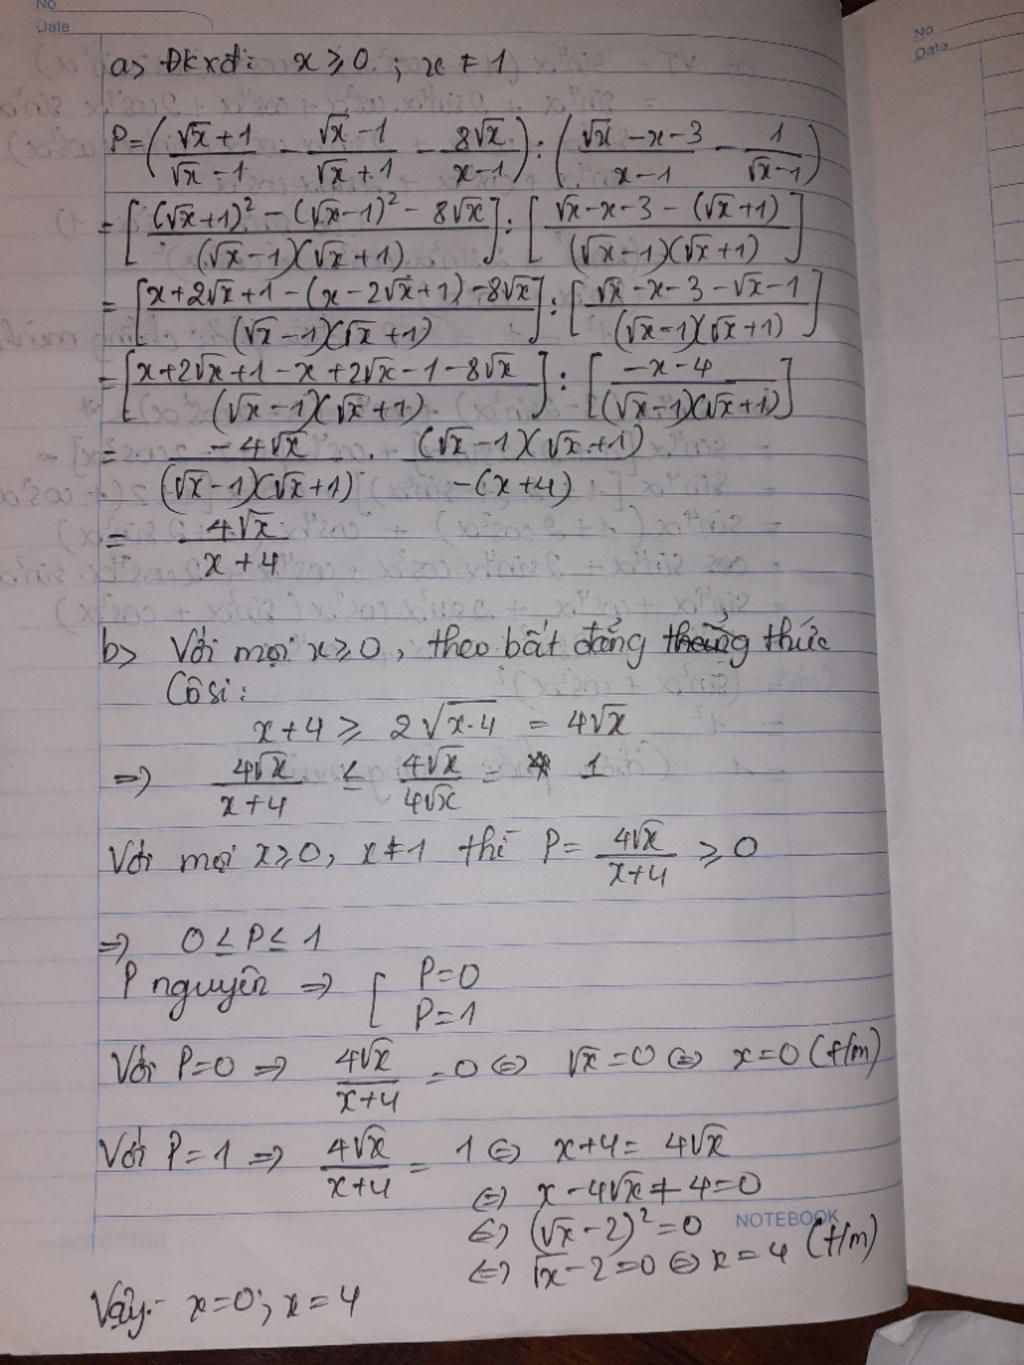 No
Date
No
Date
a> ĐKXĐ: x ≥ 0 ; x ≠ 1
P = ( (√x + 1)/(√x - 1) - (√x - 1)/(√x + 1) - 8√x/(x - 1) ) : ( (√x - x - 3)/(x - 1) - 1/(√x - 1) )
= [ ((√x + 1)² - (√x - 1)² - 8√x)/((√x - 1)(√x + 1)) ] : [ (√x - x - 3 - (√x + 1))/((√x - 1)(√x + 1)) ]
= [ (x + 2√x + 1 - (x - 2√x + 1) - 8√x)/((√x - 1)(√x + 1)) ] : [ (√x - x - 3 - √x - 1)/((√x - 1)(√x + 1)) ]
= [ (x + 2√x + 1 - x + 2√x - 1 - 8√x)/((√x - 1)(√x + 1)) ] : [ (-x - 4)/((√x - 1)(√x + 1)) ]
= (-4√x)/((√x - 1)(√x + 1)) . ((√x - 1)(√x + 1))/(-(x + 4))
= 4√x/(x + 4)
b> Với mọi x ≥ 0, theo bất đẳng thức
Côsi:
x + 4 ≥ 2√(x.4) = 4√x
=> 4√x/(x + 4) ≤ 4√x/(4√x) = 1
Với mọi x ≥ 0, x ≠ 1 thì P = 4√x/(x + 4) ≥ 0
=> 0 ≤ P ≤ 1
P nguyên => [ P = 0
P = 1
Với P = 0 => 4√x/(x + 4) = 0 <=> √x = 0 <=> x = 0 (t/m)
Với P = 1 => 4√x/(x + 4) = 1 <=> x + 4 = 4√x
<=> x - 4√x + 4 = 0
<=> (√x - 2)² = 0
NOTEBOOK
<=> √x - 2 = 0 <=> x = 4 (t/m)
Vậy: x = 0 ; x = 4